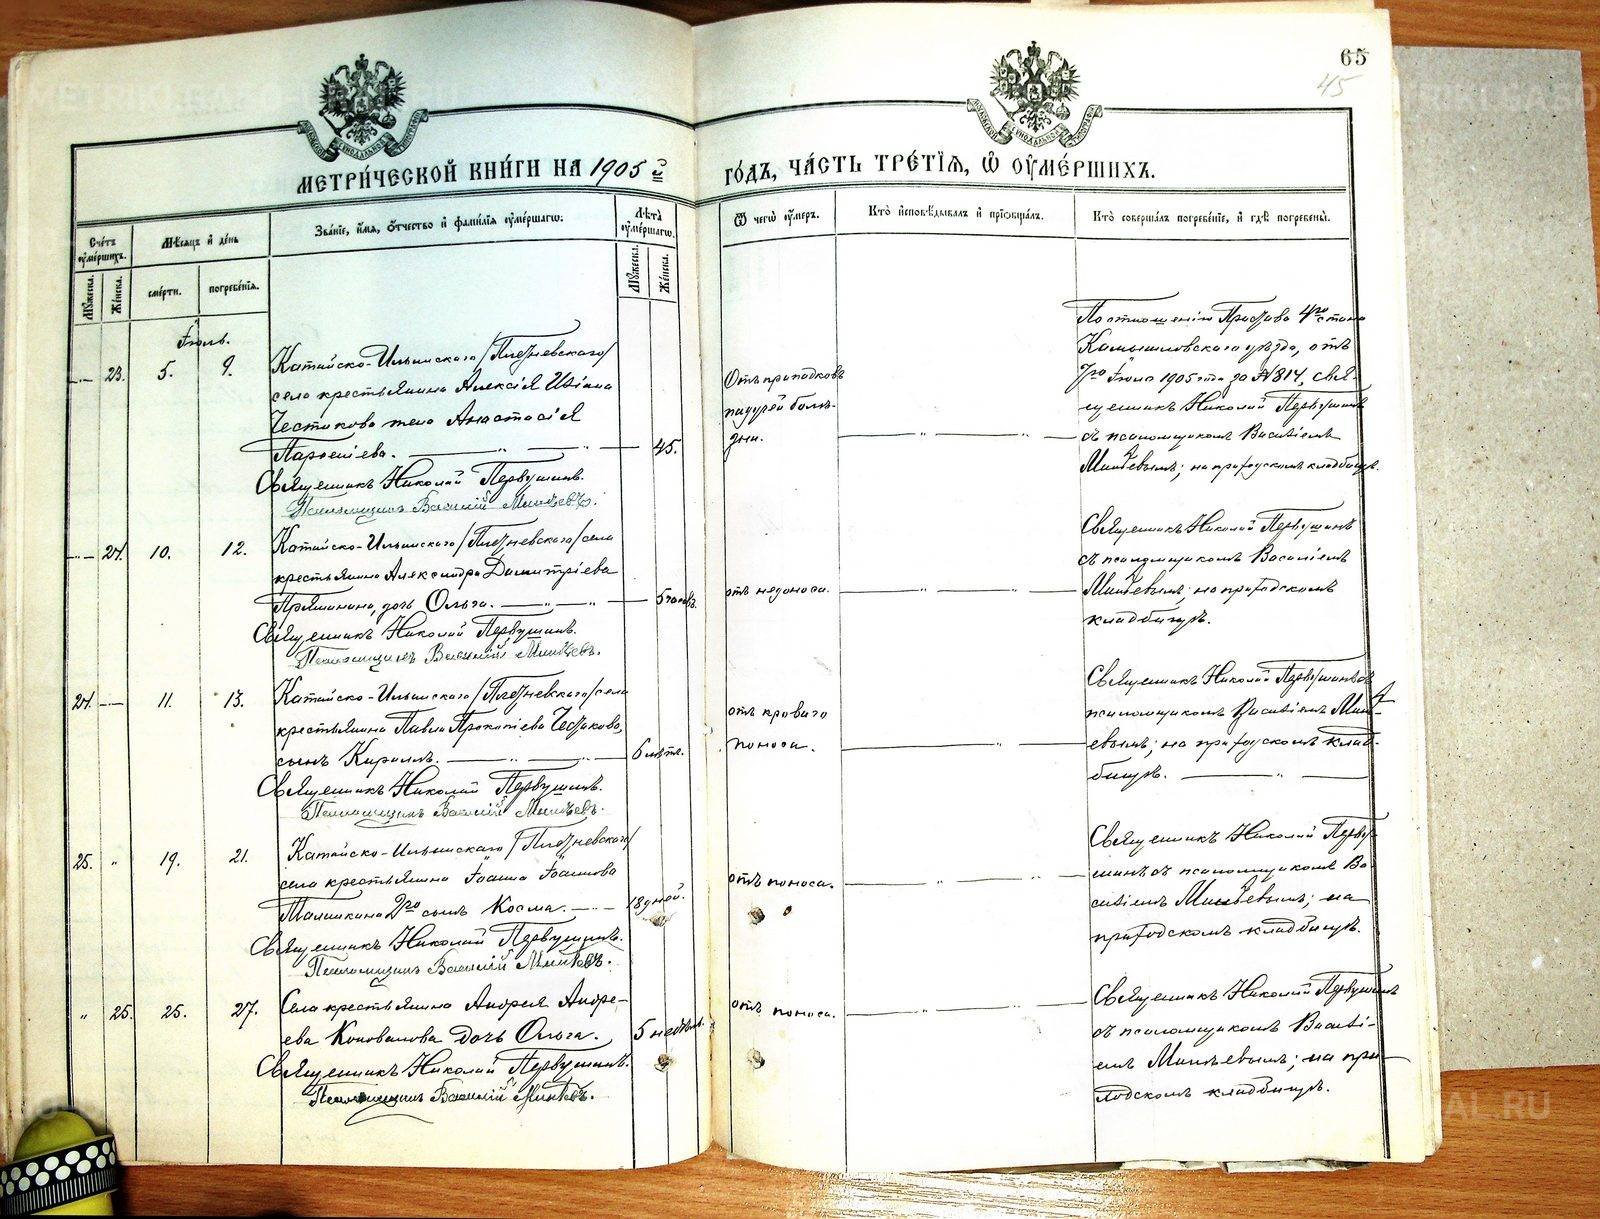 65
45
МЕТРИ́ЧЕСКОЙ КНИ́ГИ НА 1905й
ГО́ДЪ, ЧА́СТЬ ТРЕ́ТІЯ, Ѿ ОУМЕ́РШИХЪ.
Сче́тъ оуме́ршихъ.
Мѣ́сяцъ и де́нь
Зва́ніе, и́мя, о́тчество и фами́лія оуме́ршагѡ.
Лѣ́та оуме́ршагѡ.
Мꙋ́жеска.
Же́нска.
сме́рти.
погребе́нія.
Мꙋ́жеска.
Же́нска.
Ѿ чегѡ̀ оу́меръ.
Кто̀ исповѣ́дывалъ и пріѡбща́лъ.
Кто̀ соверша́лъ погребе́ніе, и гдѣ̀ погребены̀.
Іюль.
23.
5.
9.
Катайско-Ильинскаго /
села крестьянина Алексія Ивана
Честикова жена Анастасія
45.
Священникъ Николай Первушинъ.
Псаломщикъ Василій Минѣевъ.
Отъ припадковъ
падучей болѣ-
зни.
По отношенію Пристава 4го стана
Камышловскаго уѣзда, отъ
7го Іюля 1905 года за №814, свя-
щенникъ Николай Первушинъ
съ псаломщикомъ Василіемъ
Минѣевымъ; на приходскомъ кладбищѣ.
24.
10.
12.
Катайско-Ильинскаго / села
крестьянина Александра Димитріева
дочь Ольга.
5 часовъ.
Священникъ Николай Первушинъ.
Псаломщикъ Василій Минѣевъ.
отъ недоноса.
Священникъ Николай Первушинъ
съ псаломщикомъ Василіемъ
Минѣевымъ; на приходскомъ
кладбищѣ.
24.
11.
13.
Катайско-Ильинскаго / села
крестьянина Павла Прокопіева Честикова,
сынъ Кириллъ.
6 лѣтъ.
Священникъ Николай Первушинъ.
Псаломщикъ Василій Минѣевъ.
отъ кроваго
поноса.
Священникъ Николай Первушинъ съ
псаломщикомъ Василіемъ Минѣ-
евымъ; на приходскомъ клад-
бищѣ.
25.
„
19.
21.
Катайско-Ильинскаго /
села крестьянина Іоанна Іоаннова
2го сынъ Косма.
18 дней.
Священникъ Николай Первушинъ.
Псаломщикъ Василій Минѣевъ.
отъ поноса.
Священникъ Николай Перву-
шинъ съ псаломщикомъ Ва-
силіемъ Минѣевымъ; на
приходскомъ кладбищѣ.
„
25.
25.
27.
Села крестьянина Андрея Андре-
ева Коновалова дочь Ольга.
5 недѣль.
Священникъ Николай Первушинъ.
Псаломщикъ Василій Минѣевъ.
отъ поноса.
Священникъ Николай Первушинъ
съ псаломщикомъ Василі-
емъ Минѣевымъ; на при-
ходскомъ кладбищѣ.